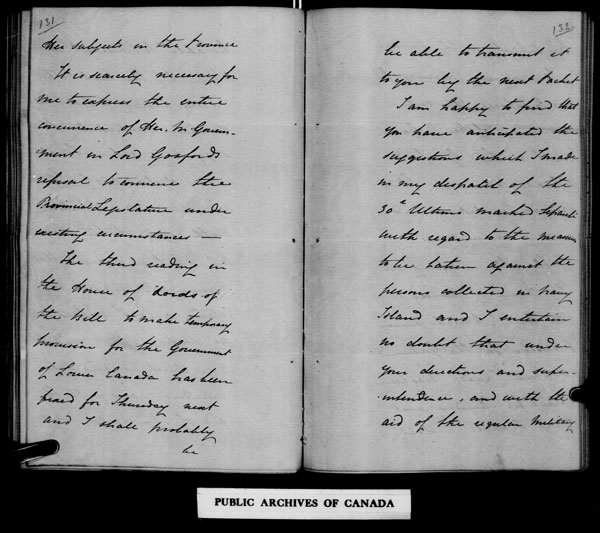 131
Her subjects in the Province
It is scarcely necessary for
me to express the entire
concurrence of Her. M. Govern-
ment in Lord Gosfords
refusal to convene the
Provincial Legislature under
existing circumstances —
The third reading in
the House of Lords of
the Bill to make temporary
provision for the Government
of Lower Canada has been
fixed for Thursday next
and I shall probably
be
132
be able to transmit it
to you by the next Packet
I am happy to find that
you have anticipated the
suggestions which I made
in my despatch of the
30th Ultimo marked Separate
with regard to the measures
to be taken against the
persons collected in Navy
Island and I entertain
no doubt that under
your directions and super-
intendence, and with the
aid of the regular Military
PUBLIC ARCHIVES OF CANADA